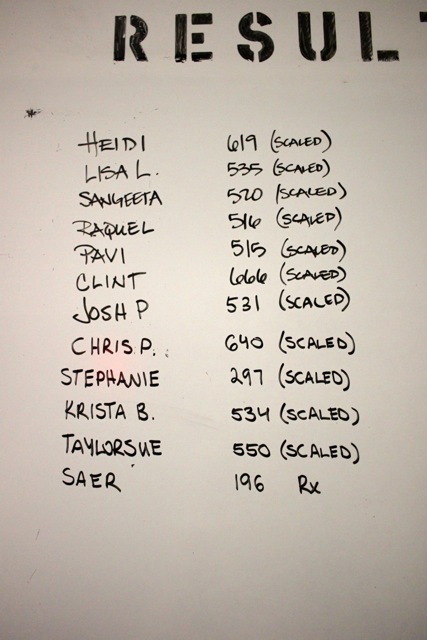 RESUL
HEIDI 619 (SCALED)
LISA L. 535 (SCALED)
SANGEETA 520 (SCALED)
RAQUEL 516 (SCALED)
PAVI 515 (SCALED)
CLINT 666 (SCALED)
JOSH P 531 (SCALED)
CHRIS P. 640 (SCALED)
STEPHANIE 297 (SCALED)
KRISTA B. 534 (SCALED)
TAYLORSUE 550 (SCALED)
SAER 196 Rx